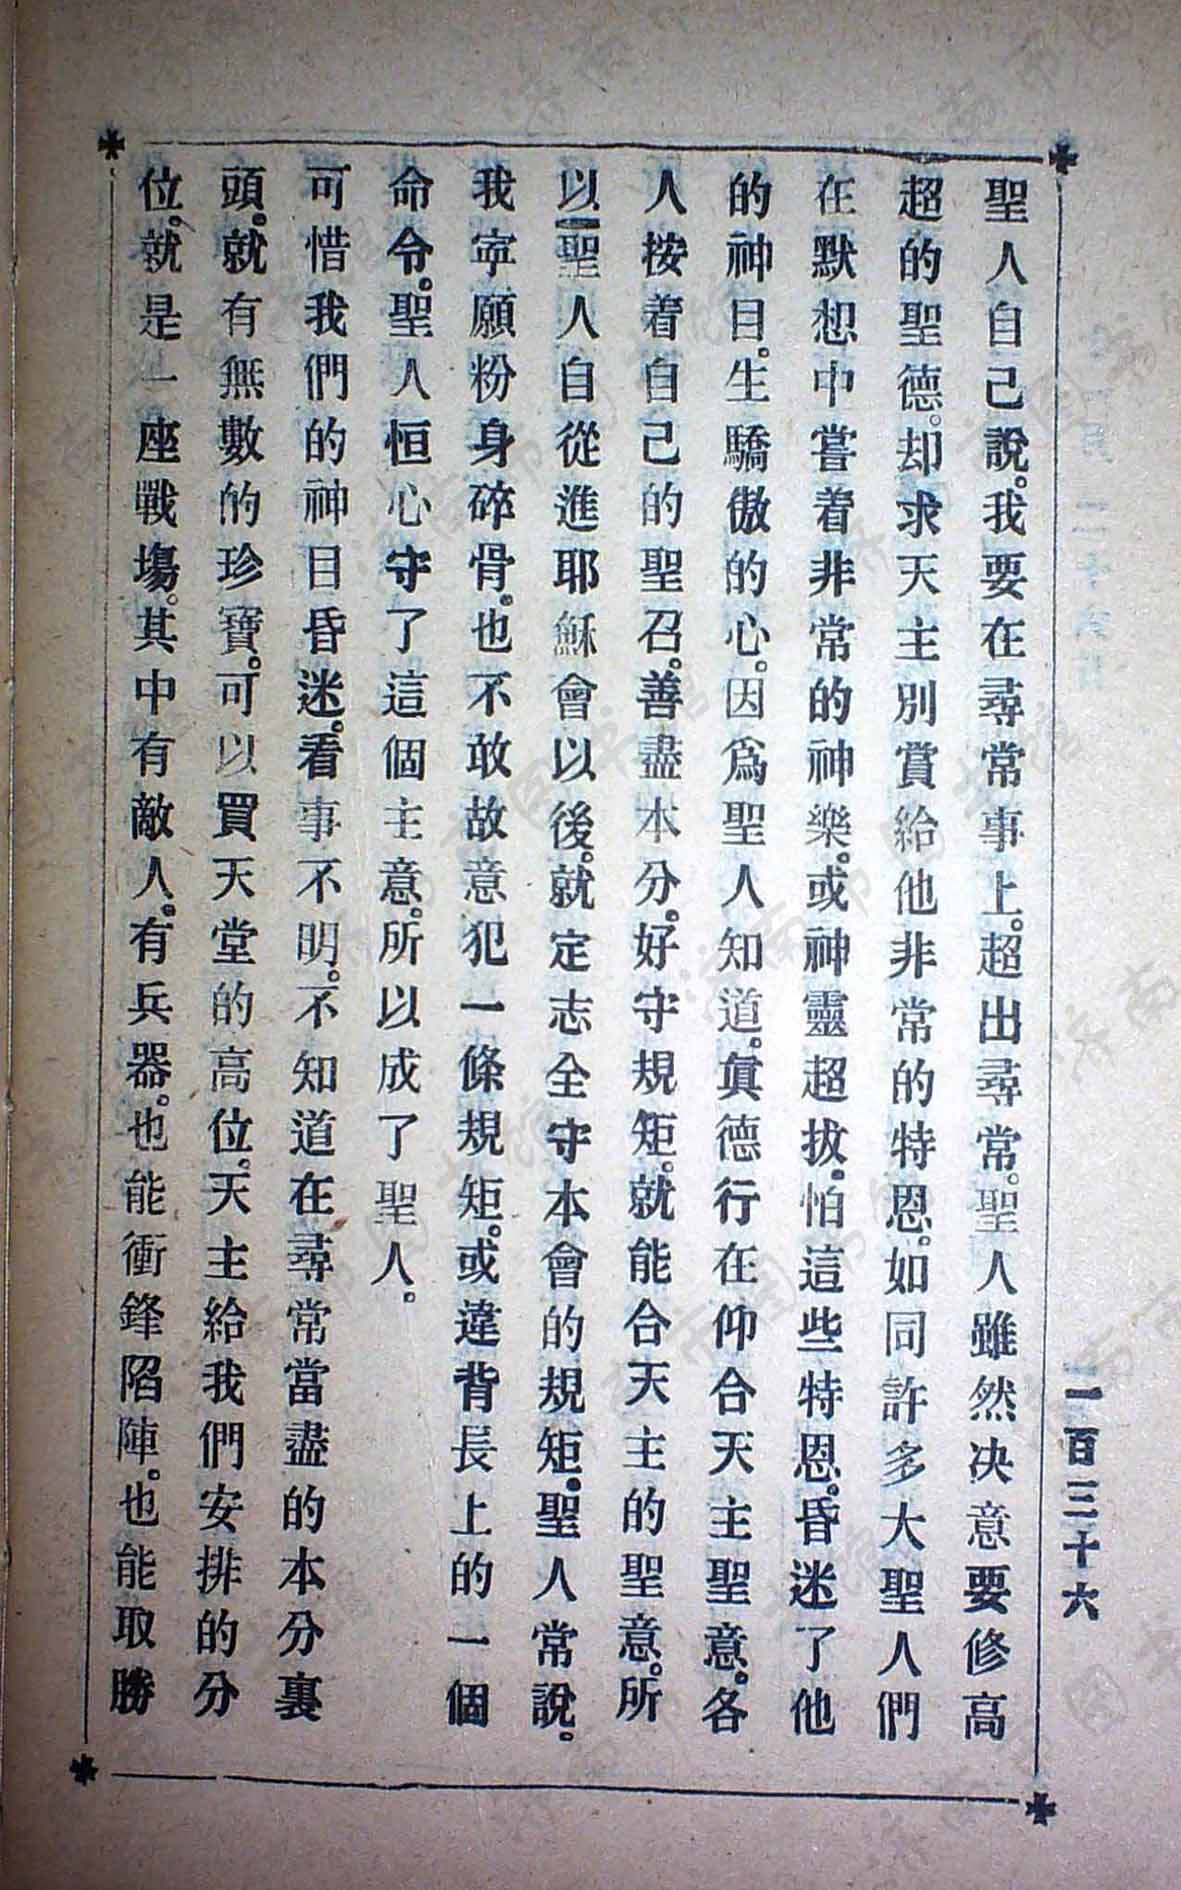 一百三十六
聖人自己說。我要在尋常事上。超出尋常。聖人雖然决意要修高
超的聖德。却求天主別賞給他非常的特恩。如同許多大聖人們
在默想中嘗着非常的神樂。或神靈超拔。怕這些特恩。昏迷了他
的神目。生驕傲的心。因爲聖人知道。眞德行在仰合天主聖意。各
人按着自己的聖召。善盡本分。好守規矩。就能合天主的聖意。所
以聖人自從進耶穌會以後。就定志全守本會的規矩。聖人常說。
我寜願粉身碎骨。也不敢故意犯一條規矩。或違背長上的一個
命令。聖人恒心守了這個主意。所以成了聖人。
可惜我們的神目昏迷。看事不明。不知道在尋常當盡的本分裏
頭。就有無數的珍寶。可以買天堂的高位。天主給我們安排的分
位。就是一座戰塲。其中有敵人。有兵器。也能衝鋒陷陣。也能取勝